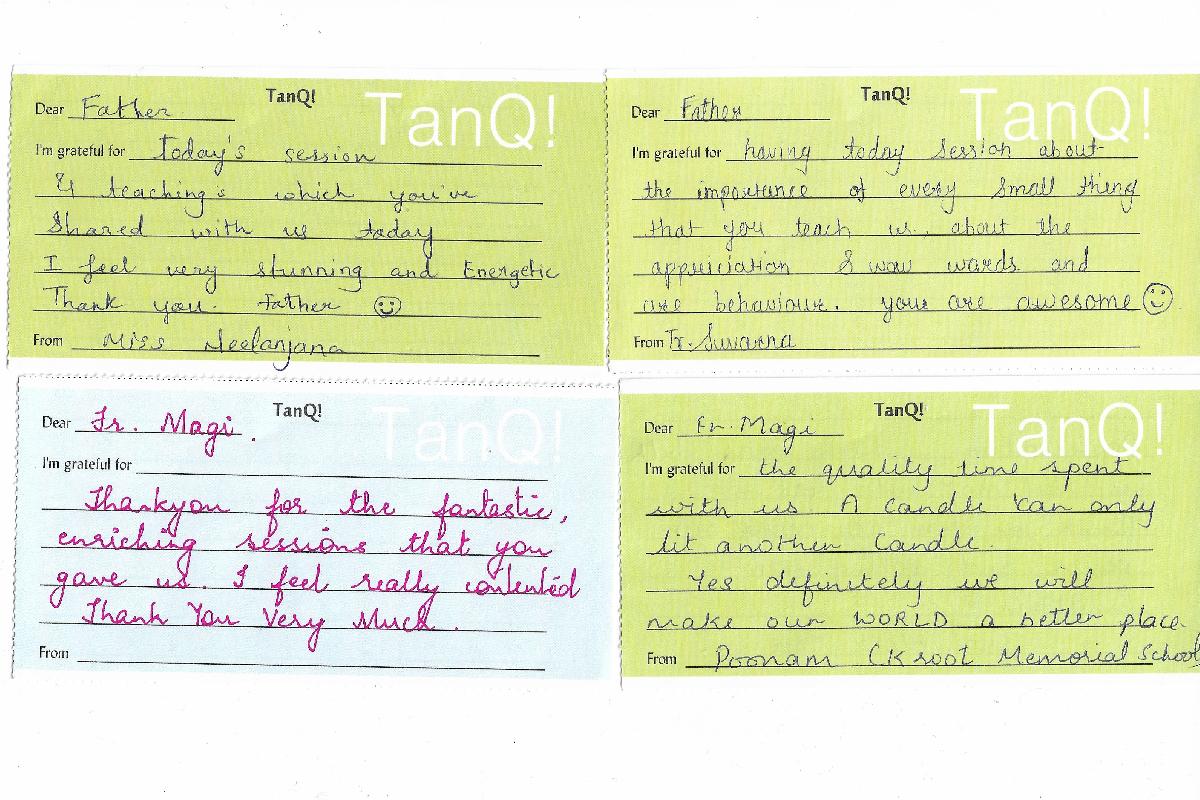 TanQ!
TanQ!
Dear Father
I'm grateful for today's session
& teaching's which you've
Shared with us today
I feel very stunning and Energetic
Thank you. Father
From Miss Neelanjana
TanQ!
TanQ!
Dear Father
I'm grateful for having today Session about
the importance of every Small thing
that you teach us. about the
appriciation & wow words and
are behaviour. your are awesome
From Tr. Suvarna
TanQ!
TanQ!
Dear Fr. Magi.
I'm grateful for
Thankyou for the fantastic,
enriching sessions that you
gave us. I feel really contented
Thank You Very Much.
From
TanQ!
TanQ!
Dear Fr. Magi
I'm grateful for the quality time spent
with us A Candle can only
lit another Candle.
Yes definitely we will
make our WORLD a better place.
From Poonam CK root Memorial School